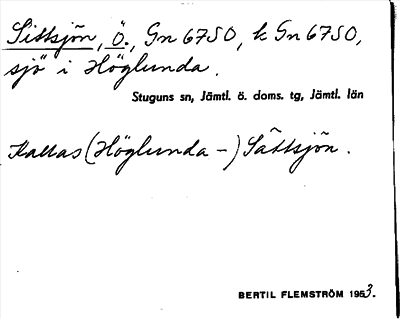 Sittsjön, Ö., Gn 6750, k Gn 6750,
sjö i Höglunda.
Stuguns sn, Jämtl. ö. doms. tg, Jämtl. län
Kallas (Höglunda -) Sättsjön.
BERTIL FLEMSTRÖM 1963.